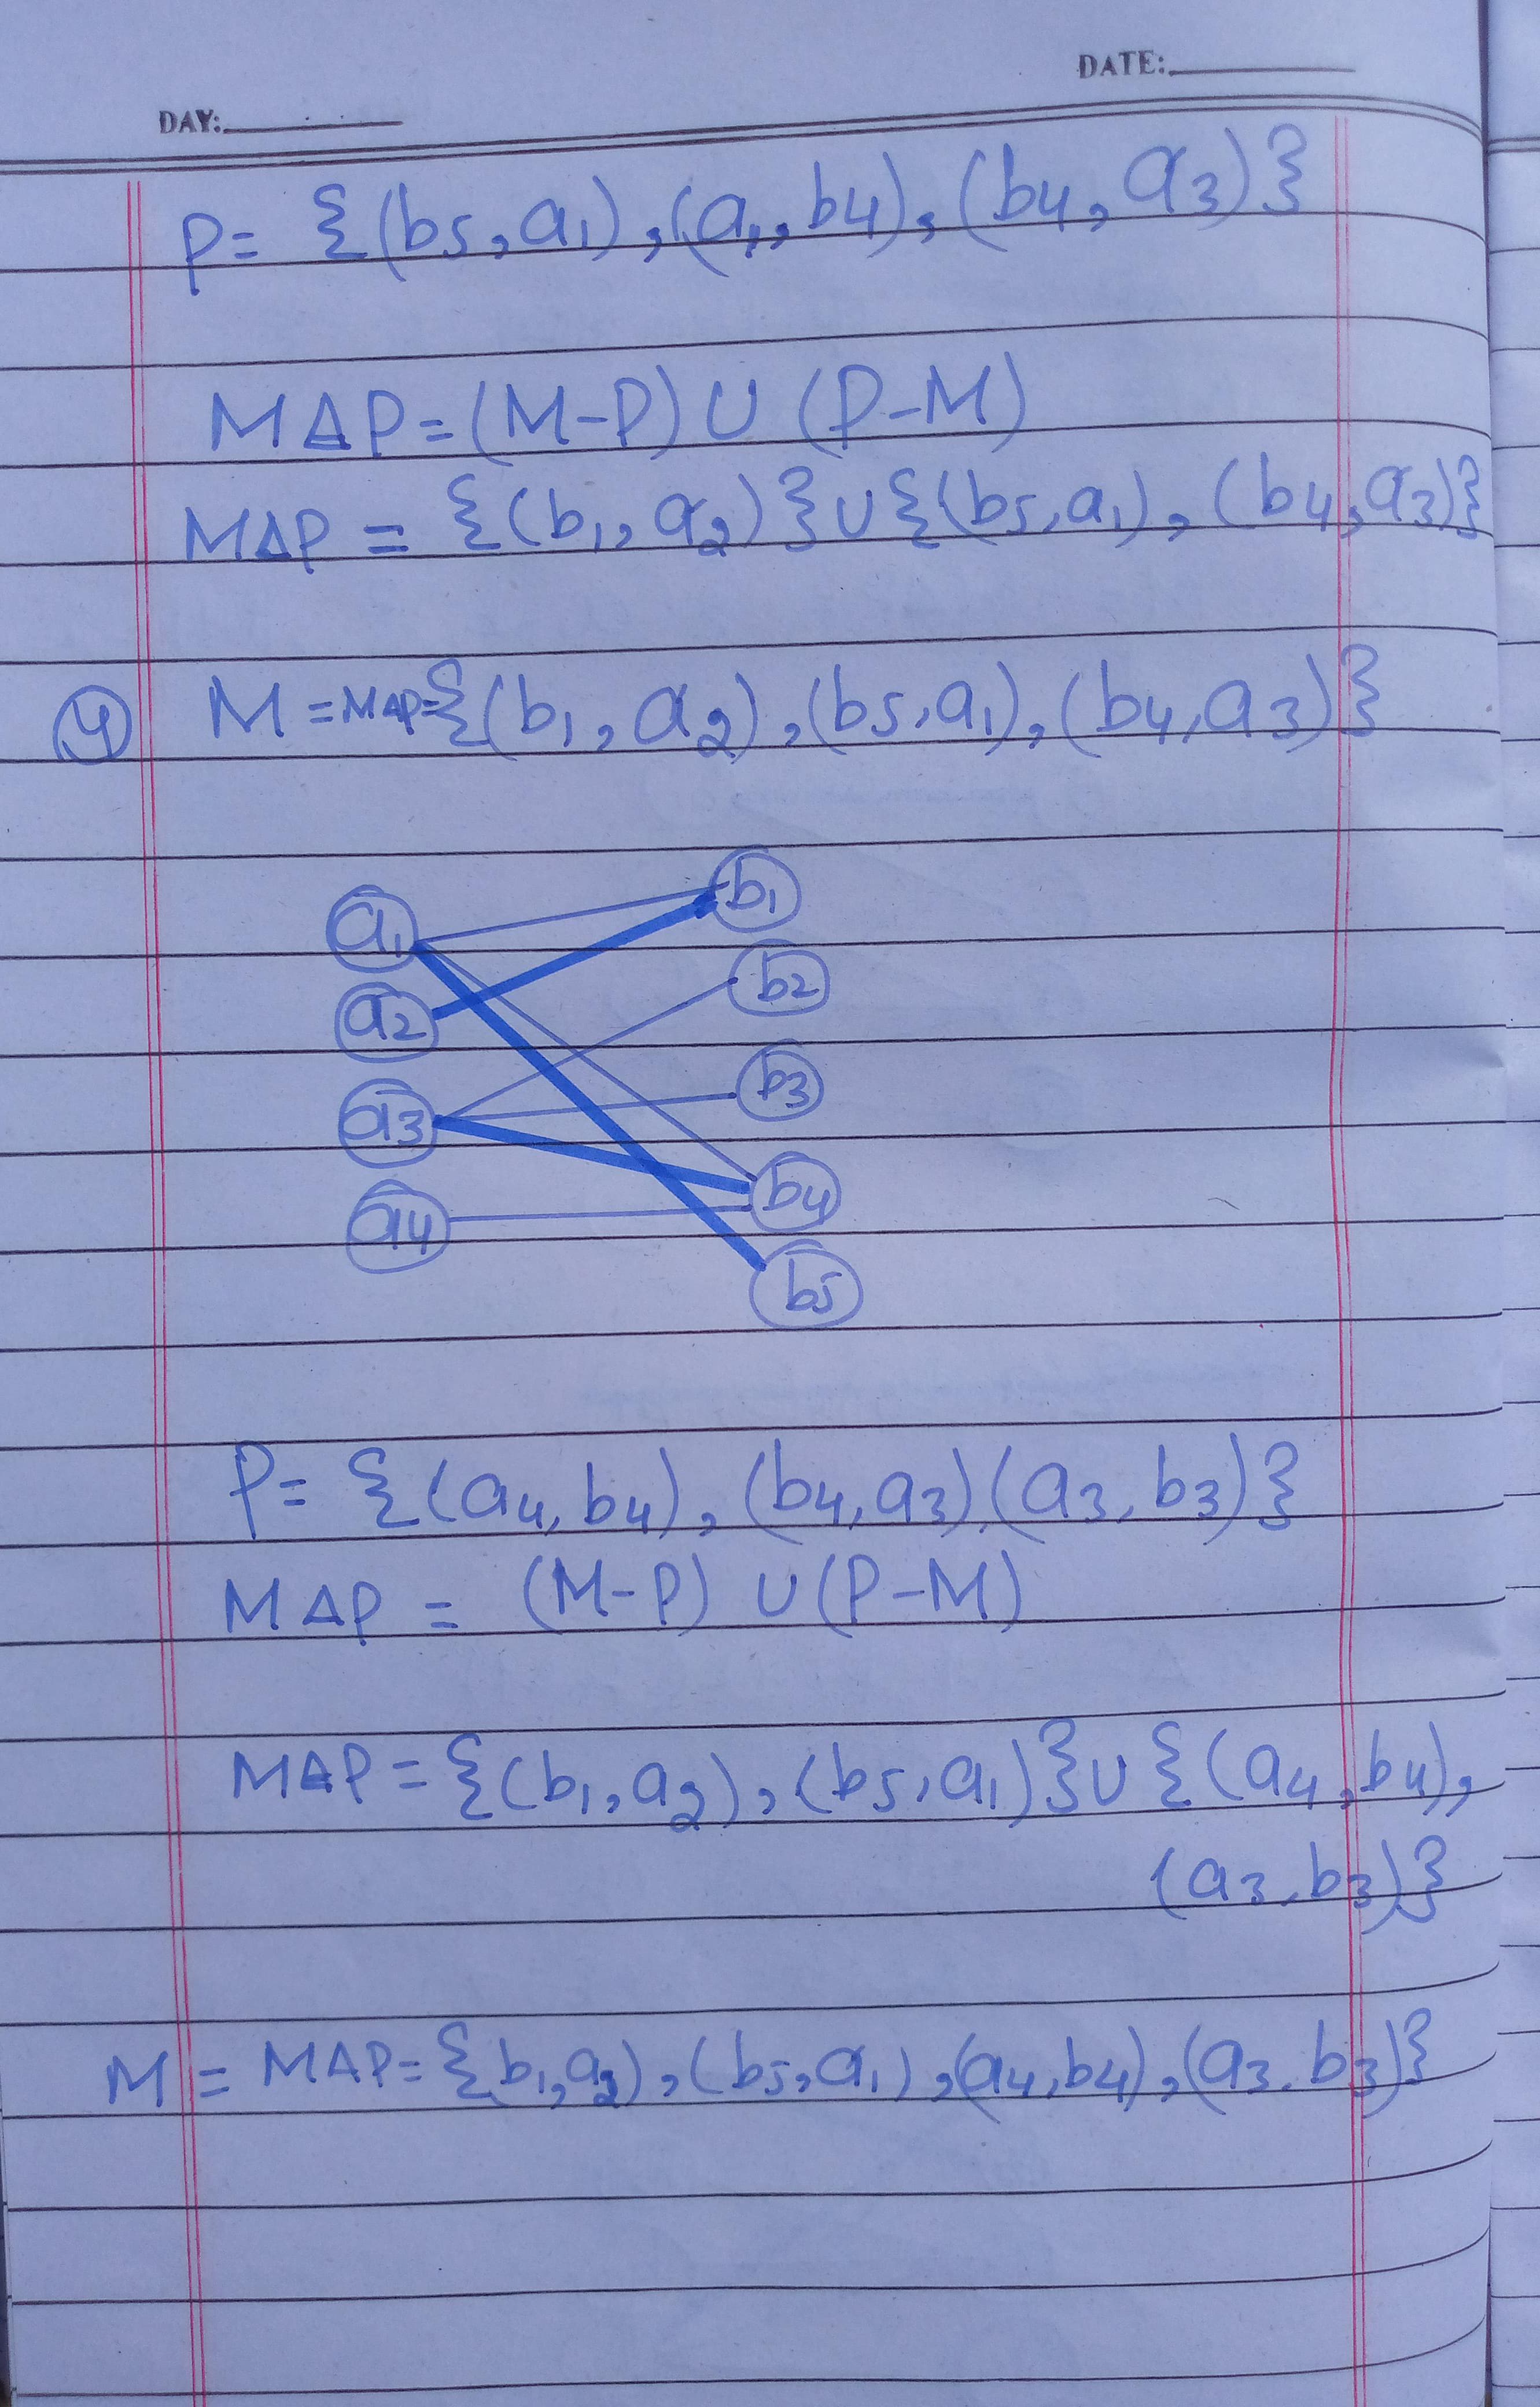 DATE:
DAY:
P= {(b5,a1),(a1,b4),(b4,a3)}
MΔP=(M-P)∪(P-M)
MΔP = {(b1,a2)}∪{(b5,a1),(b4,a3)}
4 M=MΔP={(b1,a2),(b5,a1),(b4,a3)}
a1 b1
a2 b2
a3 b3
a4 b4
b5
P= {(a4,b4),(b4,a3),(a3,b3)}
MΔP = (M-P) ∪(P-M)
MΔP={(b1,a2),(b5,a1)}∪{(a4,b4),
(a3,b3)}
M = MΔP={b1,a2),(b5,a1),(a4,b4),(a3,b3)}